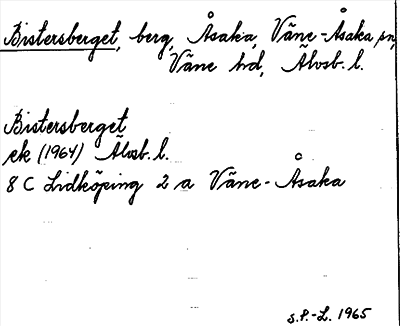 Bistersberget, berg, Åsaka, Väne-Åsaka sn,
Väne hd, Älvsb. l.
Bistersberget
ek (1964) Älvsb. l.
8 C Lidköping 2 a Väne-Åsaka
S.P.-L. 1965